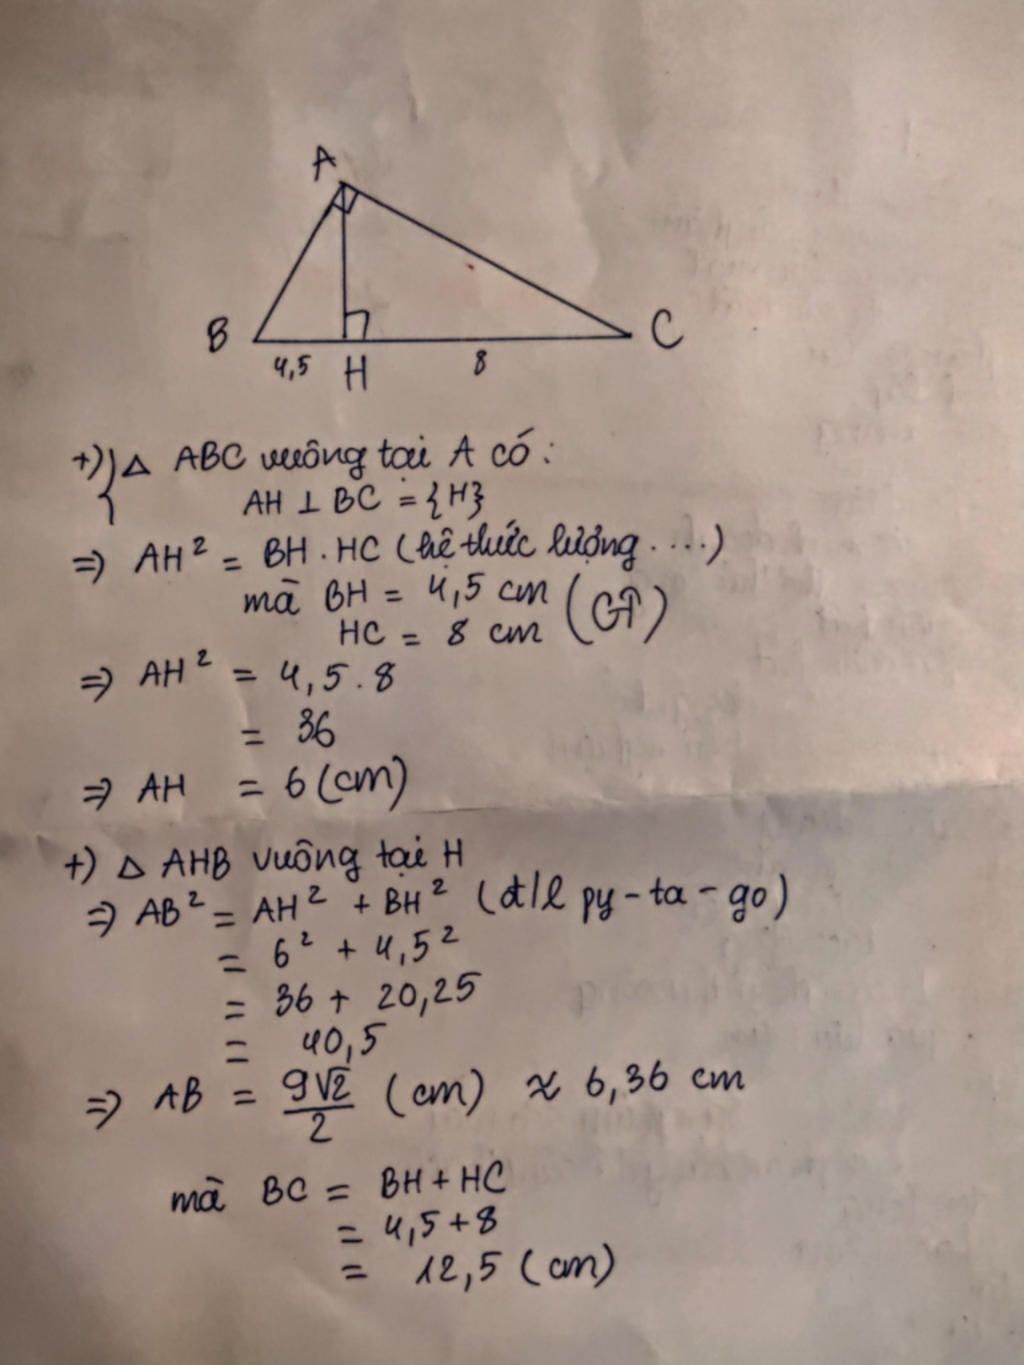 A
B
C
4,5
H
8
+) Δ ABC vuông tại A có:
AH ⊥ BC = {H}
⇒ AH² = BH . HC (hệ thức lượng ....)
mà BH = 4,5 cm (GT)
HC = 8 cm
⇒ AH² = 4,5 . 8
= 36
⇒ AH = 6 (cm)
+) Δ AHB vuông tại H
⇒ AB² = AH² + BH² (đ/l py-ta-go)
= 6² + 4,5²
= 36 + 20,25
= 40,5
⇒ AB = 9√2/2 (cm) ≈ 6,36 cm
mà BC = BH + HC
= 4,5 + 8
= 12,5 (cm)